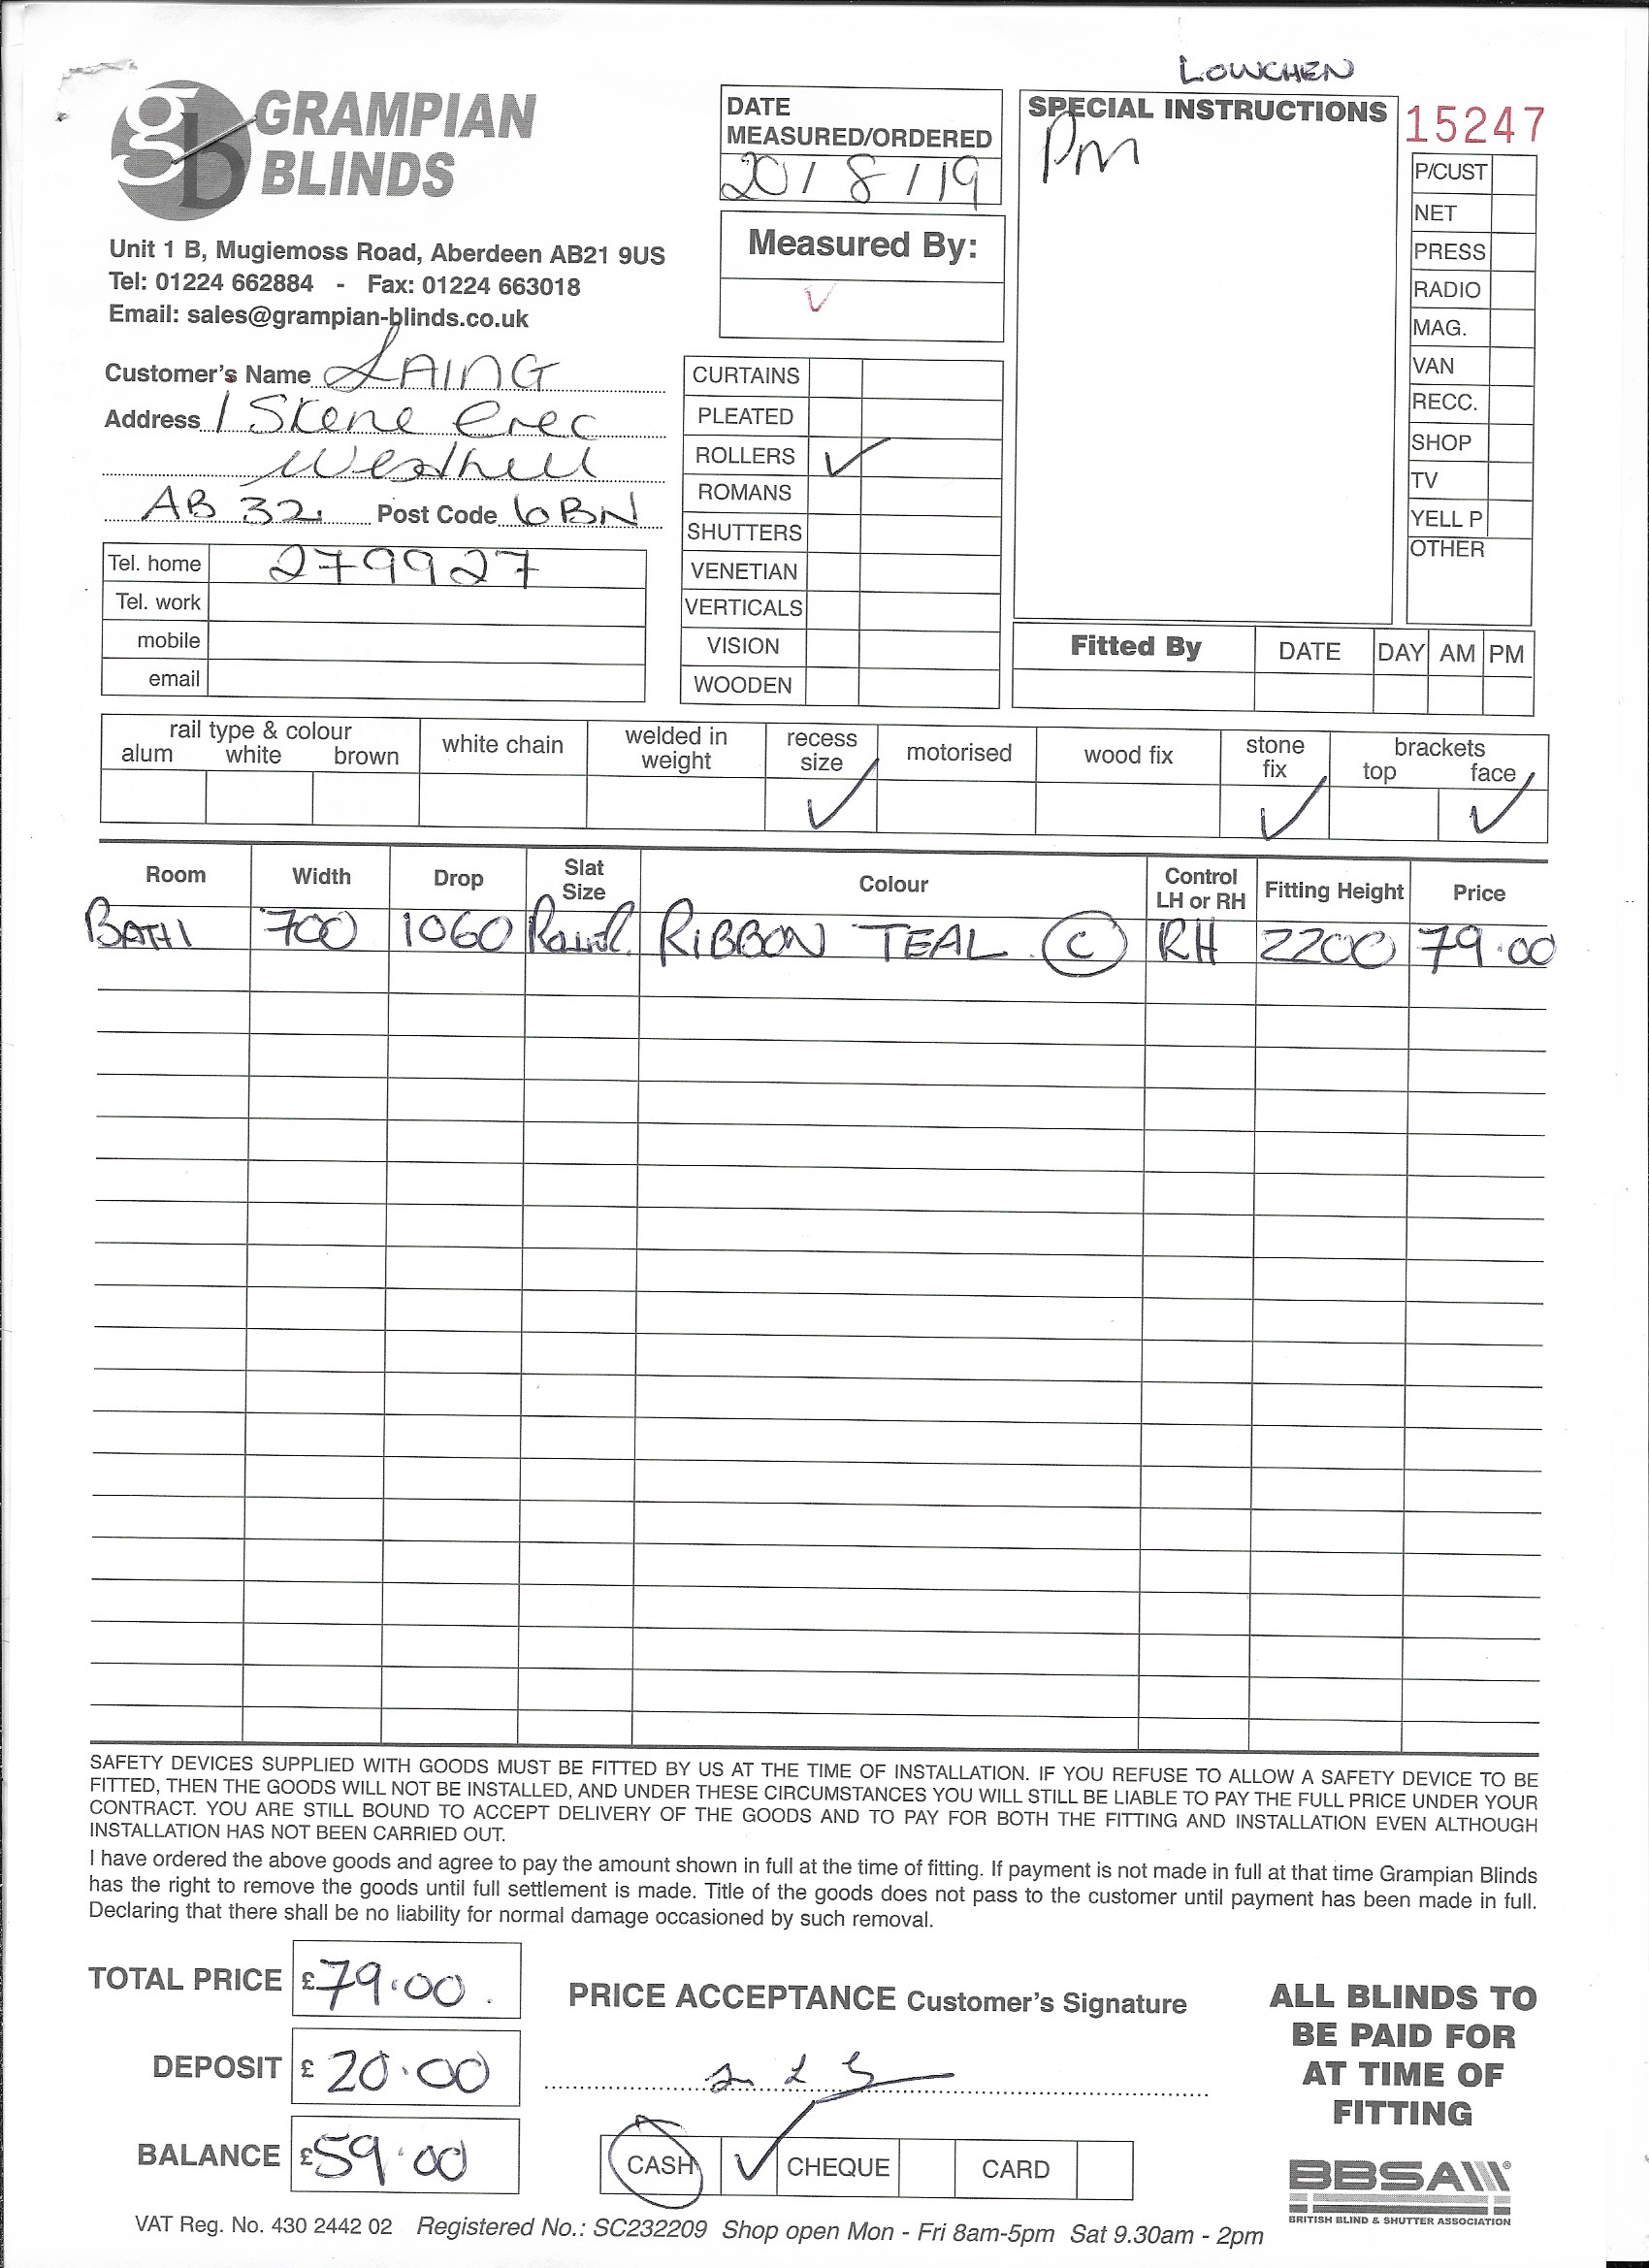 LOWCHEN
GRAMPIAN
BLINDS
Unit 1 B, Mugiemoss Road, Aberdeen AB21 9US
Tel: 01224 662884 - Fax: 01224 663018
Email: sales@grampian-blinds.co.uk
Customer's Name LAING
Address 1 Skene Cres
Westhill
AB 32 Post Code 6BN
Tel. home 279927
Tel. work
mobile
email
DATE
MEASURED/ORDERED
20/8/19
Measured By:
CURTAINS
PLEATED
ROLLERS ✓
ROMANS
SHUTTERS
VENETIAN
VERTICALS
VISION
WOODEN
SPECIAL INSTRUCTIONS
Pm
15247
P/CUST
NET
PRESS
RADIO
MAG.
VAN
RECC.
SHOP
TV
YELL P
OTHER
Fitted By DATE DAY AM PM
rail type & colour
alum white brown
white chain
welded in
weight
recess
size ✓
motorised
wood fix
stone
fix ✓
brackets
top face ✓
Room Width Drop Slat Size Colour Control LH or RH Fitting Height Price
BATH 700 1060 RIBBON TEAL (C) RH 2200 79.00
SAFETY DEVICES SUPPLIED WITH GOODS MUST BE FITTED BY US AT THE TIME OF INSTALLATION. IF YOU REFUSE TO ALLOW A SAFETY DEVICE TO BE
FITTED, THEN THE GOODS WILL NOT BE INSTALLED, AND UNDER THESE CIRCUMSTANCES YOU WILL STILL BE LIABLE TO PAY THE FULL PRICE UNDER YOUR
CONTRACT. YOU ARE STILL BOUND TO ACCEPT DELIVERY OF THE GOODS AND TO PAY FOR BOTH THE FITTING AND INSTALLATION EVEN ALTHOUGH
INSTALLATION HAS NOT BEEN CARRIED OUT.
I have ordered the above goods and agree to pay the amount shown in full at the time of fitting. If payment is not made in full at that time Grampian Blinds
has the right to remove the goods until full settlement is made. Title of the goods does not pass to the customer until payment has been made in full.
Declaring that there shall be no liability for normal damage occasioned by such removal.
TOTAL PRICE £79.00
DEPOSIT £20.00
BALANCE £59.00
PRICE ACCEPTANCE Customer's Signature
CASH ✓ CHEQUE CARD
ALL BLINDS TO
BE PAID FOR
AT TIME OF
FITTING
BBSA
BRITISH BLIND & SHUTTER ASSOCIATION
VAT Reg. No. 430 2442 02 Registered No.: SC232209 Shop open Mon - Fri 8am-5pm Sat 9.30am - 2pm